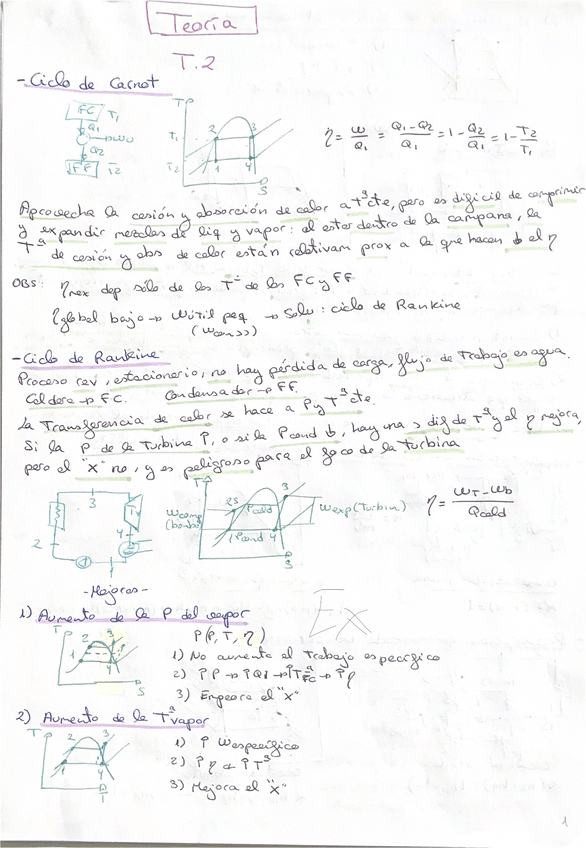 Teoría
T.2
- Ciclo de Carnot
FC T1
Q1
Q2
FF T2
T
T1
T2
2 3
1 4
S
η = W/Q1 = Q1-Q2/Q1 = 1 - Q2/Q1 = 1 - T2/T1
Aprovecha la cesión y absorción de calor a Tª cte, pero es difícil de comprimir
y expandir mezclas de liq y vapor: al estar dentro de la campana, la
Tª de cesión y abs de calor están relativam prox a la que hacen ↓ el η
OBS: ηmax dep sólo de las Tª de los FC y FF
ηglobal bajo → Wútil peq → Solu: ciclo de Rankine
- Ciclo de Rankine
Proceso rev, estacionario, no hay pérdida de carga, flujo de Trabajo es agua.
Caldera → FC. Condensador → FF.
La Transferencia de calor se hace a P y Tª cte.
Si la P de la Turbina ↑, o si la Pcond ↓, hay una > dif de Tª y el η mejora,
pero el "x" no, y es peligroso para el foco de la turbina
3
4
2
1
T
Wcomp
(bomba)
2S
3
Pcald
1 Pcond 4
S
Wexp (Turbina)
η = WT - Wb / Qcald
- Mejoras -
1) Aumento de la P del vapor
Ex
T
2 3
1 4
S
P(P, T, η)
1) No aumenta el Trabajo específico
2) ↑P → ↑Q1 → ↑TªFC → ↑η
3) Empeora el "x"
2) Aumento de la Tª vapor
T
2 3
1 4
1) ↑ Wespecífico
2) ↑η a ↑Tª
3) Mejora el "x"
1